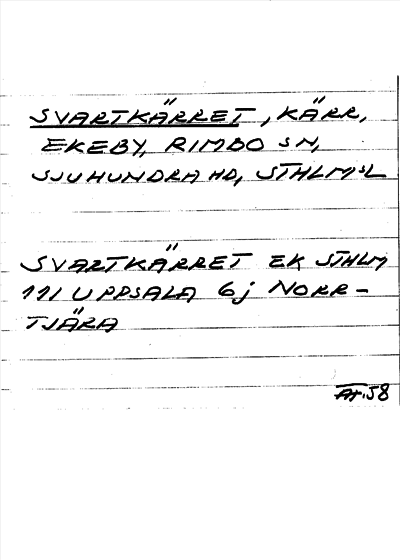 SVARTKÄRRET, KÄRR,
EKEBY, RIMBO SN,
SJUHUNDRA HD, STHLMSL
SVARTKÄRRET EK STHLM
111 UPPSALA 6j NORR-
TJÄRA